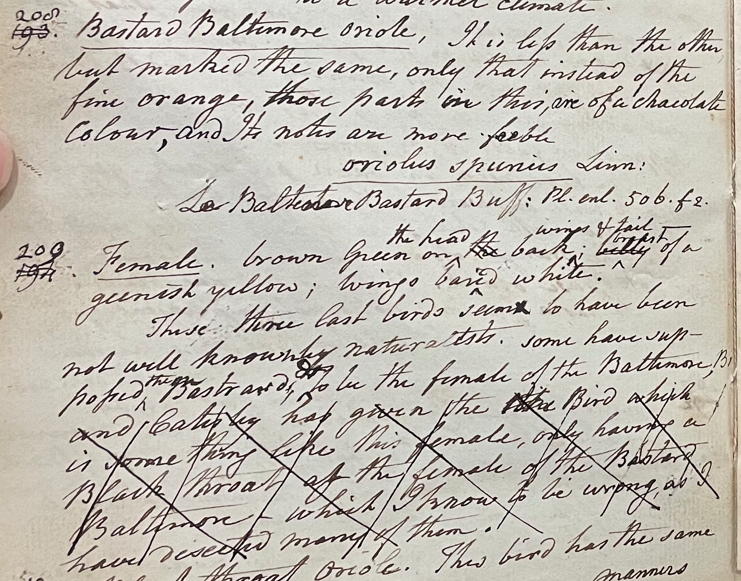 in a warmer climate.
208
193. Bastard Baltimore oriole, It is less than the other
but marked the same, only that instead of the
fine orange, those parts in this, are of a chocolate
Colour, and Its notes are more feeble
oriolus spurius Linn:
Le Baltimore Bastard Buff: Pl. enl. 506. f 2.
209
194. Female. brown Green on the head the back; wings & tail belly breast of a
geenish yellow; wings bared white.
These three last birds seems to have been
not well known by naturalists. some have sup-
posed, them Bastrards, to be the female of the Baltimore,
and Catisby has given the Bird which
is some thing like this female, only having a
Black throat as the female of the Bastard
Baltimore - which I know to be wrong as I
have disected many of them.
throat oriole. This bird has the same
manners